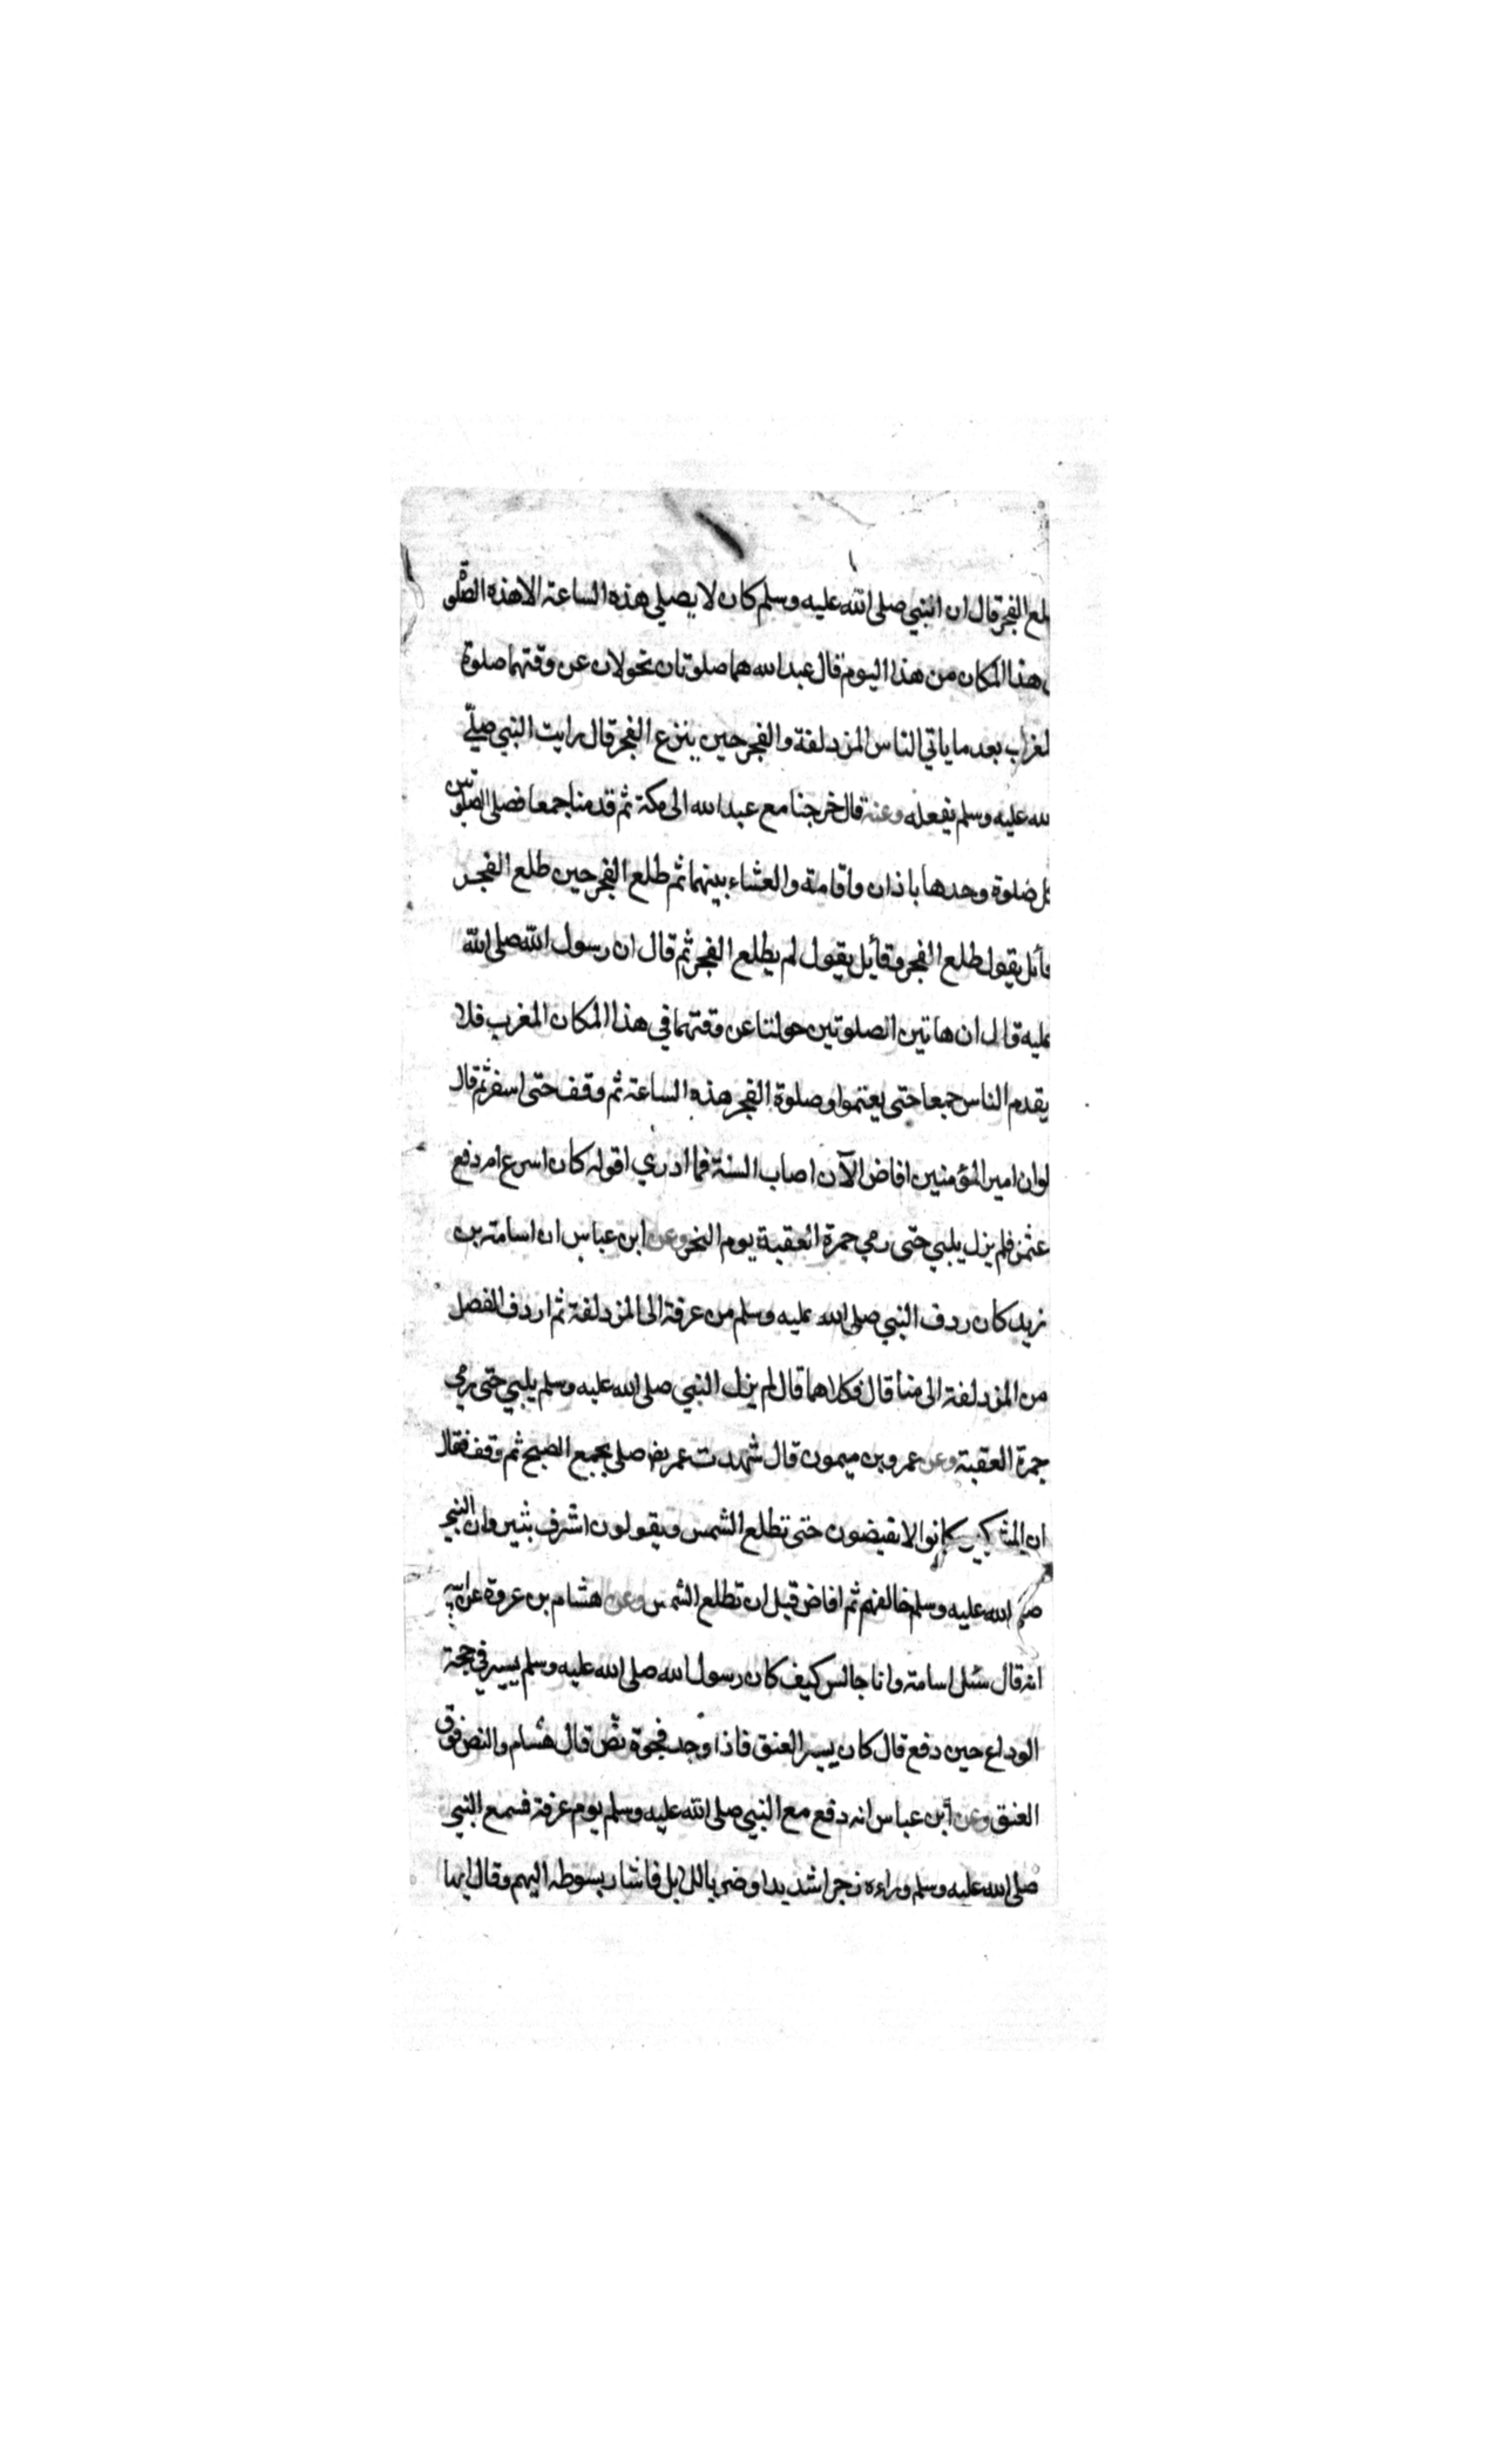 لع الفجر قال ان النبي صلى الله عليه وسلم كان لا يصلي هذه الساعة الا هذه الصلوة
هذا المكان من هذا اليوم قال عبد الله هما صلوتان تحولان عن وقتهما صلوة
لغراب بعد ما ياتي الناس المزدلفة والفجر حين ينزع الفجر قال رايت النبي صلى
لله عليه وسلم يفعله وعنه قال خرجنا مع عبد الله الى مكة ثم قدمنا جمعا فصلى الصلوتين
كل صلوة وحدها باذان واقامة والعشاء بينهما ثم طلع الفجر حين طلع الفجر
قائل يقول طلع الفجر وقائل يقول لم يطلع الفجر ثم قال ان رسول الله صلى الله
عليه قال ان هاتين الصلوتين حولتا عن وقتهما في هذا المكان المغرب فلا
يقدم الناس جمعا حتى يعتموا وصلوة الفجر هذه الساعة ثم وقف حتى اسفر ثم قال
لوان امير المؤمنين افاض الآن اصاب السنة فما ادري اقوله كان اسرع ام دفع
عثمن فلم يزل يلبي حتى رمي جمرة العقبة يوم النحر وعن ابن عباس ان اسامة بن
زيد كان ردف النبي صلى الله عليه وسلم من عرفة الى المزدلفة ثم اردف الفضل
من المزدلفة الى منا قال فكلاهما قال لم يزل النبي صلى الله عليه وسلم يلبي حتى رمي
جمرة العقبة وعن عمرو بن ميمون قال شهدت عمر رض صلى بجمع الصبح ثم وقف فقال
ان المشركين كانوا لا يفيضون حتى تطلع الشمس ويقولون اشرف ثبير وان النبي
صلى الله عليه وسلم خالفهم ثم افاض قبل ان تطلع الشمس وعن هشام بن عروة عن ابيه
انه قال سئل اسامة وانا جالس كيف كان رسول الله صلى الله عليه وسلم يسير في حجة
الوداع حين دفع قال كان يسير العنق فاذا وجد فجوة نص قال هشام والنص فوق
العنق وعن ابن عباس انه دفع مع النبي صلى الله عليه وسلم يوم عرفة فسمع النبي
صلى الله عليه وسلم وراءه زجرا شديدا وضربا للابل فاشار بسوطه اليهم وقال ايها